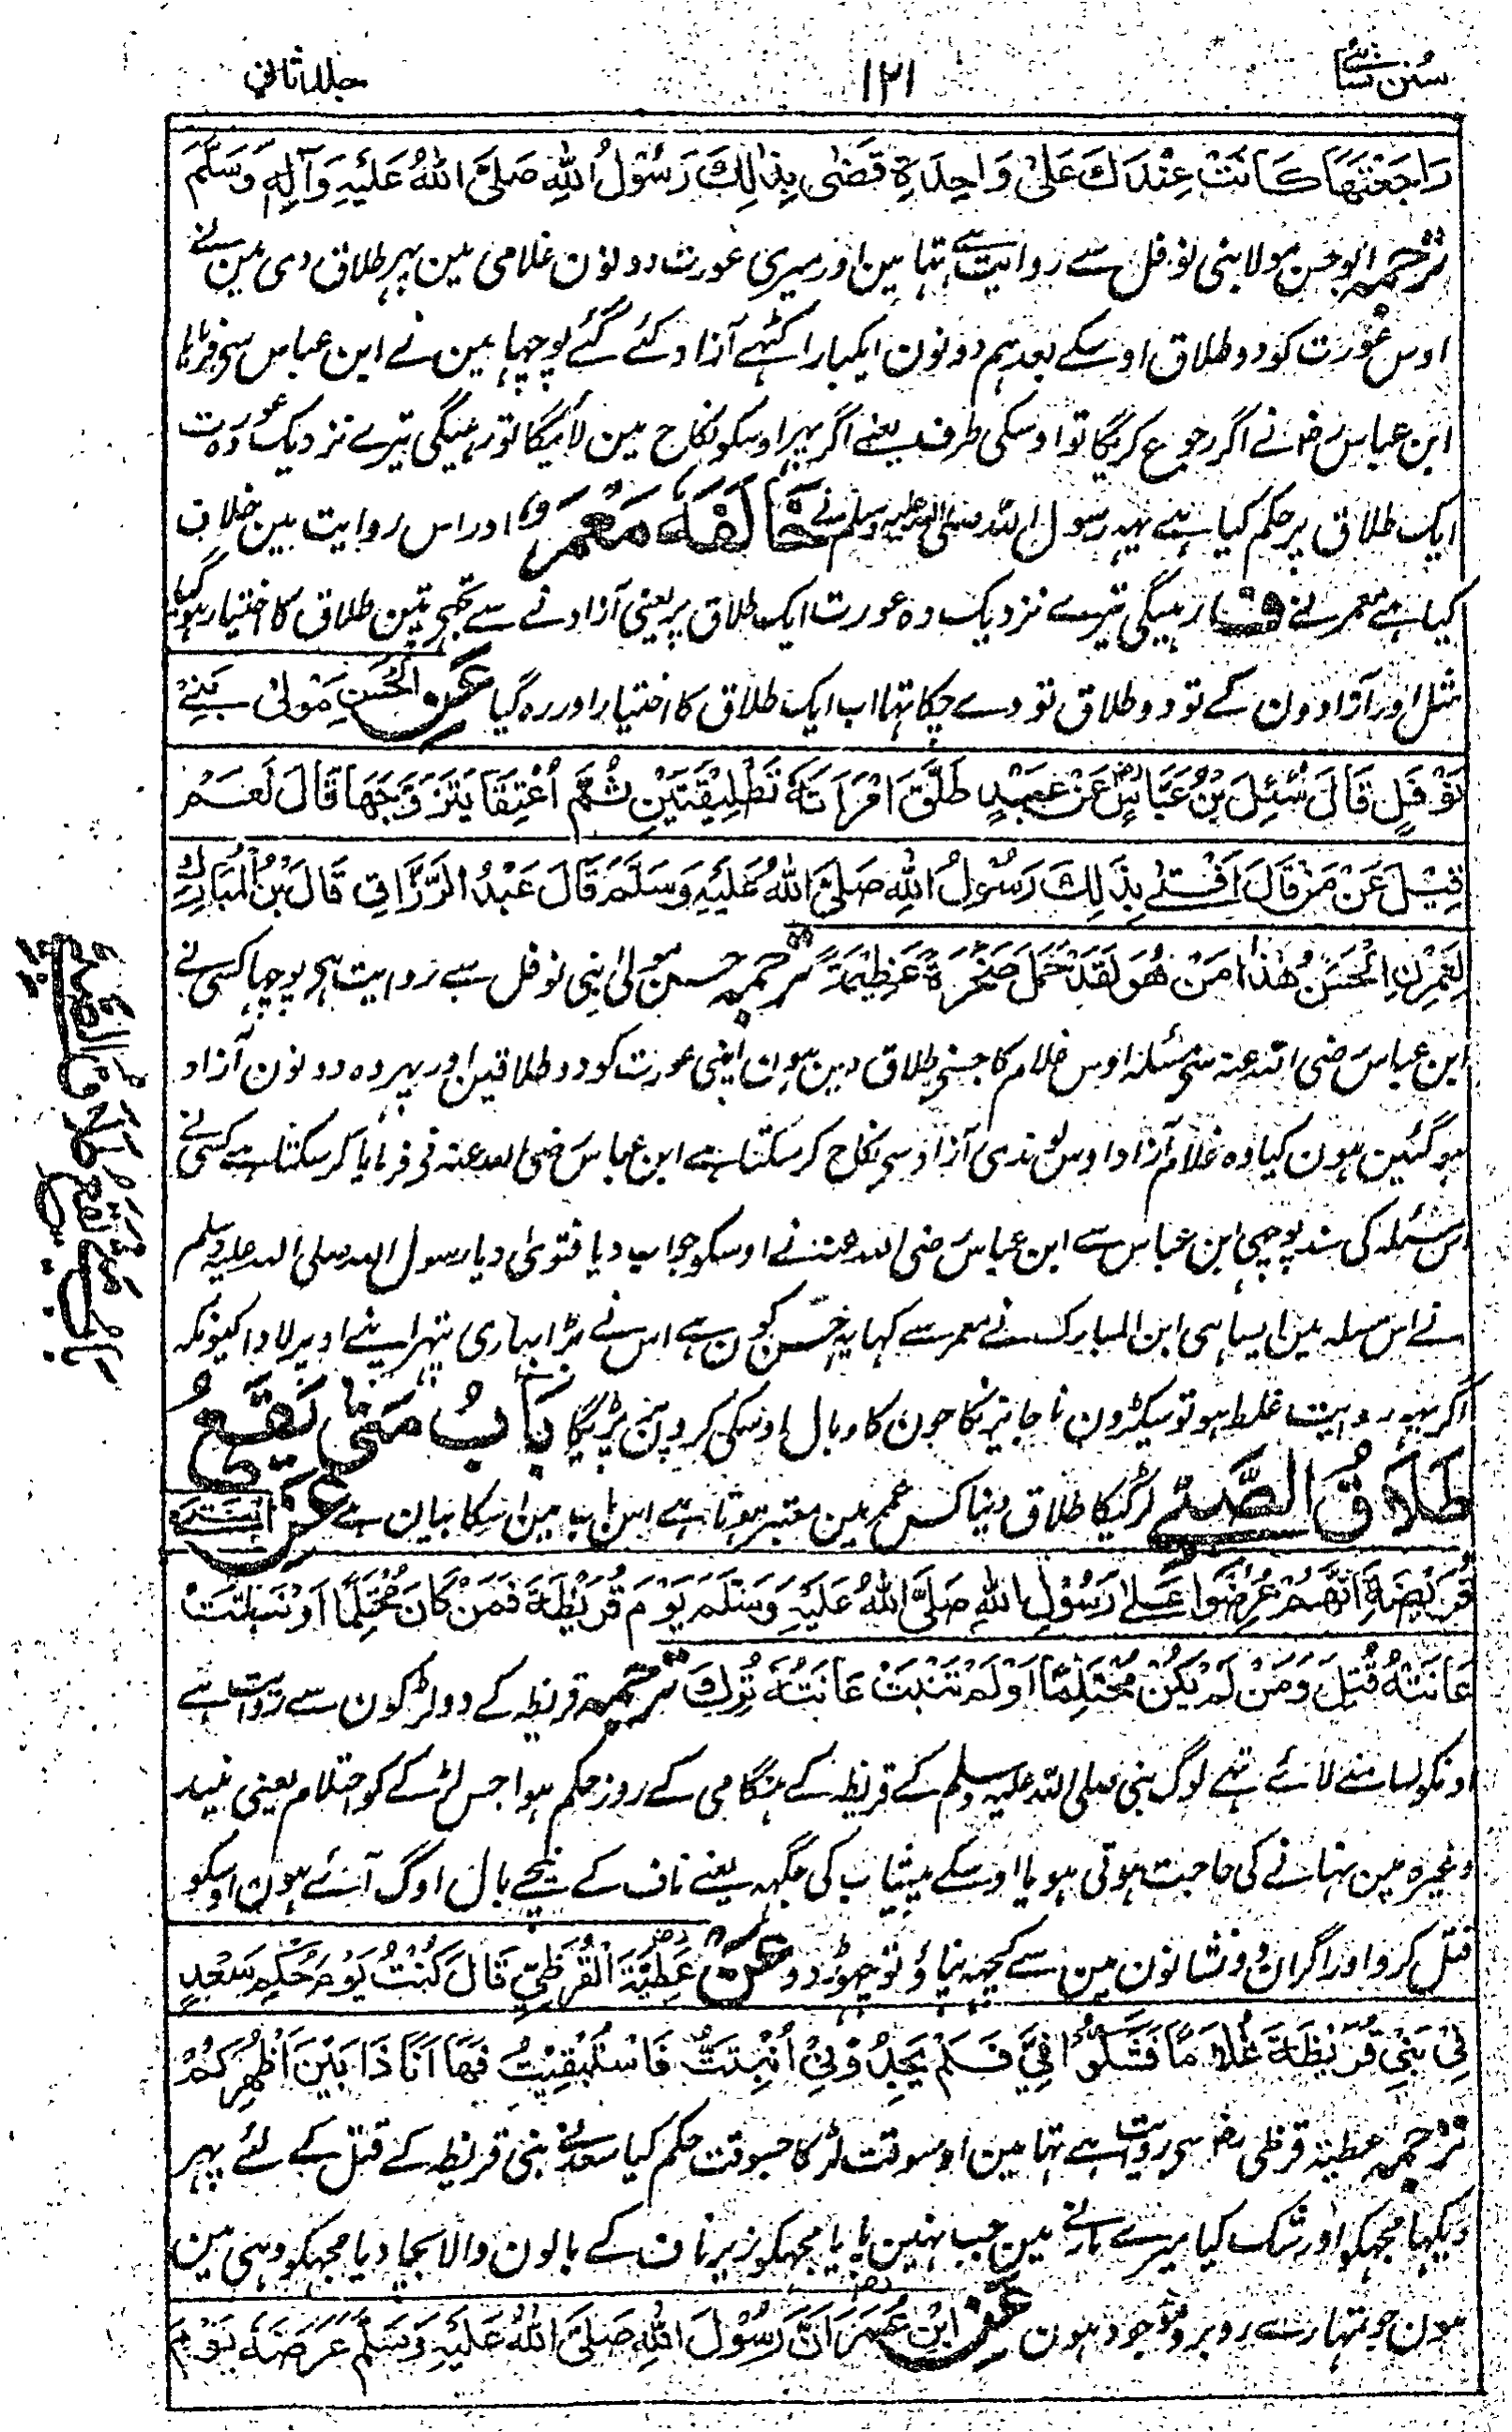 سنن نسائی
۱۲۱
جلد ثانی
رَاجَعْتَهَا كَانَتْ عِنْدَكَ عَلٰى وَاحِدَةٍ قَضٰى بِذٰلِكَ رَسُوْلُ اللهِ صَلَّى اللهُ عَلَيْهِ وَآلِهِ وَسَلَّمَ
ترجمہ ابو حسن مولا بنی نوفل سے روایت ہے تہا مین اور میری عورت دونون غلامی مین پہر طلاق دی مین نے
اوس عورت کو دو طلاق اوسکے بعد ہم دونون ایکبار اکٹہے آزاد کئے گئے پوچہا مین نے ابن عباس سے فرمایا
ابن عباس رض نے اگر رجوع کریگا تو اوسکی طرف یعنے اگر پہر اوسکو نکاح مین لائیگا تو رہیگی تیرے نزدیک وہ عورت
ایک طلاق پر حکم کیا ہے یہہ رسول اللہ صلی اللہ علیہ وسلم نے خَالَفَهٗ مَعْمَرٌ اور اس روایت مین خلاف
کیا ہے معمر نے ف رہیگی تیرے نزدیک وہ عورت ایک طلاق پر یعنی آزاد نے سے تجہے تین طلاق کا اختیار ہو گیا
مثل اور آزادون کے تو دو طلاق تو دے چکا تہا اب ایک طلاق کا اختیار اور رہ گیا عَنِ الْحَسَنِ مَوْلٰى بَنِيْ
نَوْفَلٍ قَالَ سُئِلَ بْنُ عَبَّاسٍ عَنْ عَبْدٍ طَلَّقَ امْرَاَتَهٗ تَطْلِيْقَتَيْنِ ثُمَّ اُعْتِقَا يَتَزَوَّجُهَا قَالَ نَعَمْ
قِيْلَ عَنْ مَنْ قَالَ اَفْتٰى بِذٰلِكَ رَسُوْلُ اللهِ صَلَّى اللهُ عَلَيْهِ وَسَلَّمَ قَالَ عَبْدُ الرَّزَّاقِ قَالَ بْنُ الْمُبَارَكِ
لِمَعْمَرٍ اَلْحَسَنُ هٰذَا مَنْ هُوَ لَقَدْ حَمَلَ صَخْرَةً عَظِيْمَةً ترجمہ حسن مولیٰ بنی نوفل سے روایت ہے پوچہا کسی نے
ابن عباس رضی اللہ عنہ سے مسئلہ اوس غلام کا جسنے طلاق دین ہون اپنی عورت کو دو طلاقین اور پہر وہ دونون آزاد
ہو گئین ہون کیا وہ غلام آزاد اوس لونڈی آزاد سے نکاح کر سکتا ہے ابن عباس رضی اللہ عنہ نے فرمایا کر سکتا ہے کسی نے
اس مسئلہ کی سند پوچہی ابن عباس سے ابن عباس رضی اللہ عنہ نے اوسکو جواب دیا فتوی دیا رسول اللہ صلی اللہ علیہ وسلم
نے اس مسئلہ مین ایسا ہی ابن المبارک نے معمر سے کہا یہ حسن کون ہے اس نے بڑا بہاری پتہر اپنے اوپر لادا کیونکہ
اگر یہہ روایت غلط ہو تو سیکڑون ناجایز نکاحون کا وبال اوسکی گردن پر پڑیگا بَابُ مَتٰى يَقَعُ
طَلَاقُ الصَّبِيِّ لڑکیکا طلاق دینا کس عمر مین معتبر ہوتا ہے اس باب مین اسکا بیان ہے عَنْ اِبْنَيْ
قُرَيْضَةَ اَنَّهُمْ عُرِضُوْا عَلٰى رَسُوْلِ اللهِ صَلَّى اللهُ عَلَيْهِ وَسَلَّمَ يَوْمَ قُرَيْظَةَ فَمَنْ كَانَ مُحْتَلِمًا اَوْ نَبَتَتْ
عَانَتُهٗ قُتِلَ وَمَنْ لَمْ يَكُنْ مُحْتَلِمًا اَوْ لَمْ تَنْبُتْ عَانَتُهٗ تُرِكَ ترجمہ قریظہ کے دو لڑکون سے روایت ہے
اونکو سامنے لائے تہے لوگ بنی صلی اللہ علیہ وسلم کے قریظہ کے ہنگامی کے روز حکم ہوا جس لڑکے کو احتلام یعنی نیند
وغیرہ مین نہانے کی حاجت ہوتی ہو یا اوسکے پیشاب کی جگہہ یعنے ناف کے نیچے بال اوگ آئے ہون اوسکو
قتل کرو اور اگر ان دو نشانون مین سے کچہہ نپاؤ تو چہوڑ دو عَنْ عَطِيَّةَ الْقُرَظِيِّ قَالَ كُنْتُ يَوْمَ حُكْمِ سَعْدٍ
فِيْ بَنِيْ قُرَيْظَةَ غُلَامًا فَشَكُّوْا فِيَّ فَلَمْ يَجِدُوْنِيْ اَنْبَتُّ فَاسْتُبْقِيْتُ فَهَا اَنَا ذَا بَيْنَ اَظْهُرِكُمْ
ترجمہ عطیہ قرظی رض سے روایت ہے تہا مین اوسوقت لڑکا جسوقت حکم کیا سعد نے بنی قریظہ کے قتل کے لئے پہر
دیکہا مجہکو اور شک کیا میرے مارنے مین جب نہین پایا مجہکو زیر ناف کے بالون والا بچا دیا مجہکو وہی مین
ہون جو تمہارے روبرو موجود ہون عَنْ اِبْنِ عُمَرَ اَنَّ رَسُوْلَ اللهِ صَلَّى اللهُ عَلَيْهِ وَسَلَّمَ عَرَضَهٗ يَوْمَ
باب متی یقع طلاق الصبی